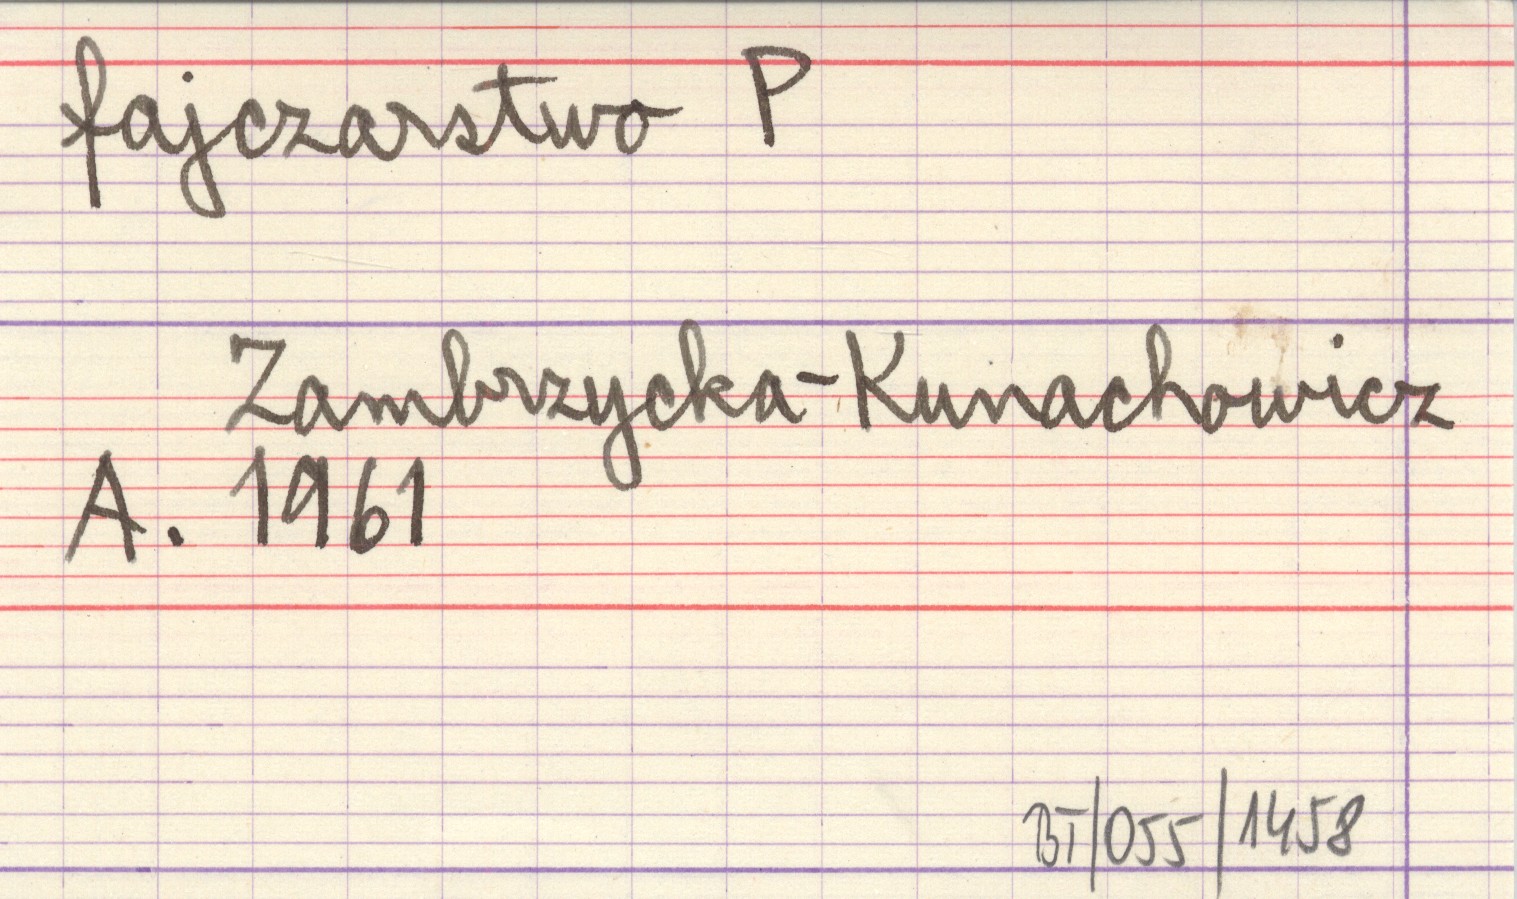 fajczarstwo P
Zambrzycka-Kunachowicz
A. 1961
BT/055/1458